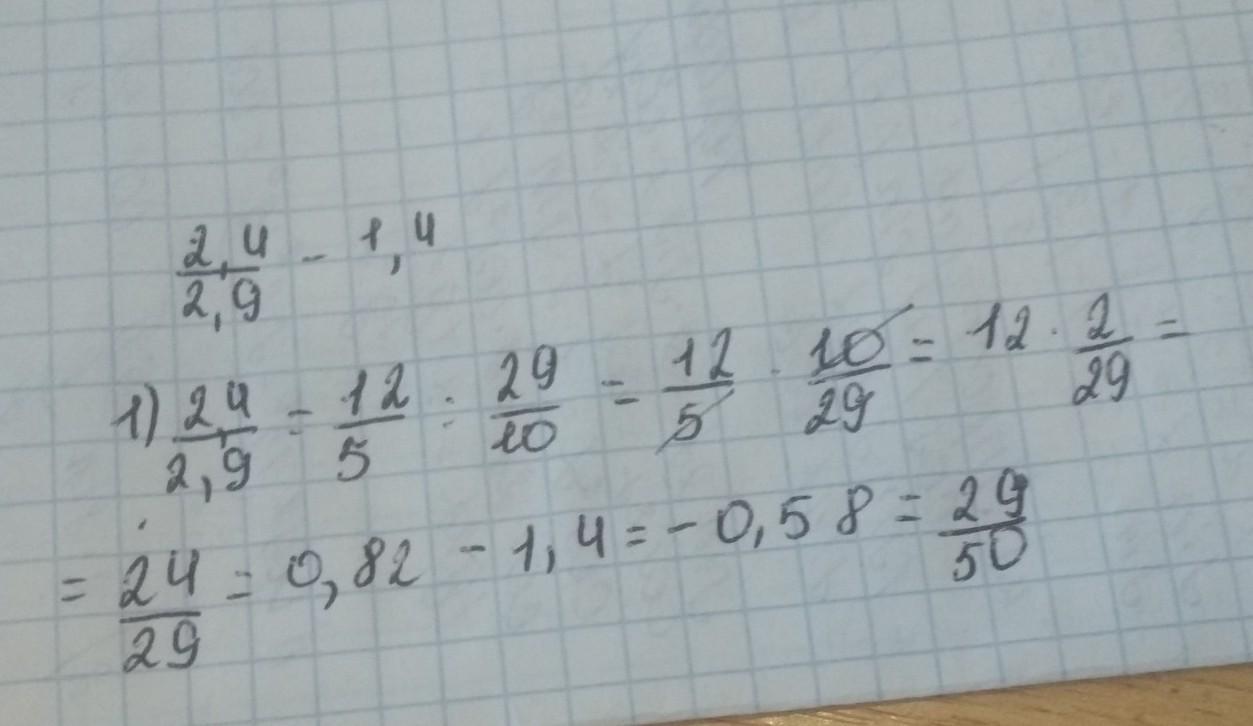 2,4/2,9 - 1,4
1) 2,4/2,9 = 12/5 : 29/10 = 12/5 · 10/29 = 12 · 2/29 =
= 24/29 = 0,82 - 1,4 = -0,58 = 29/50